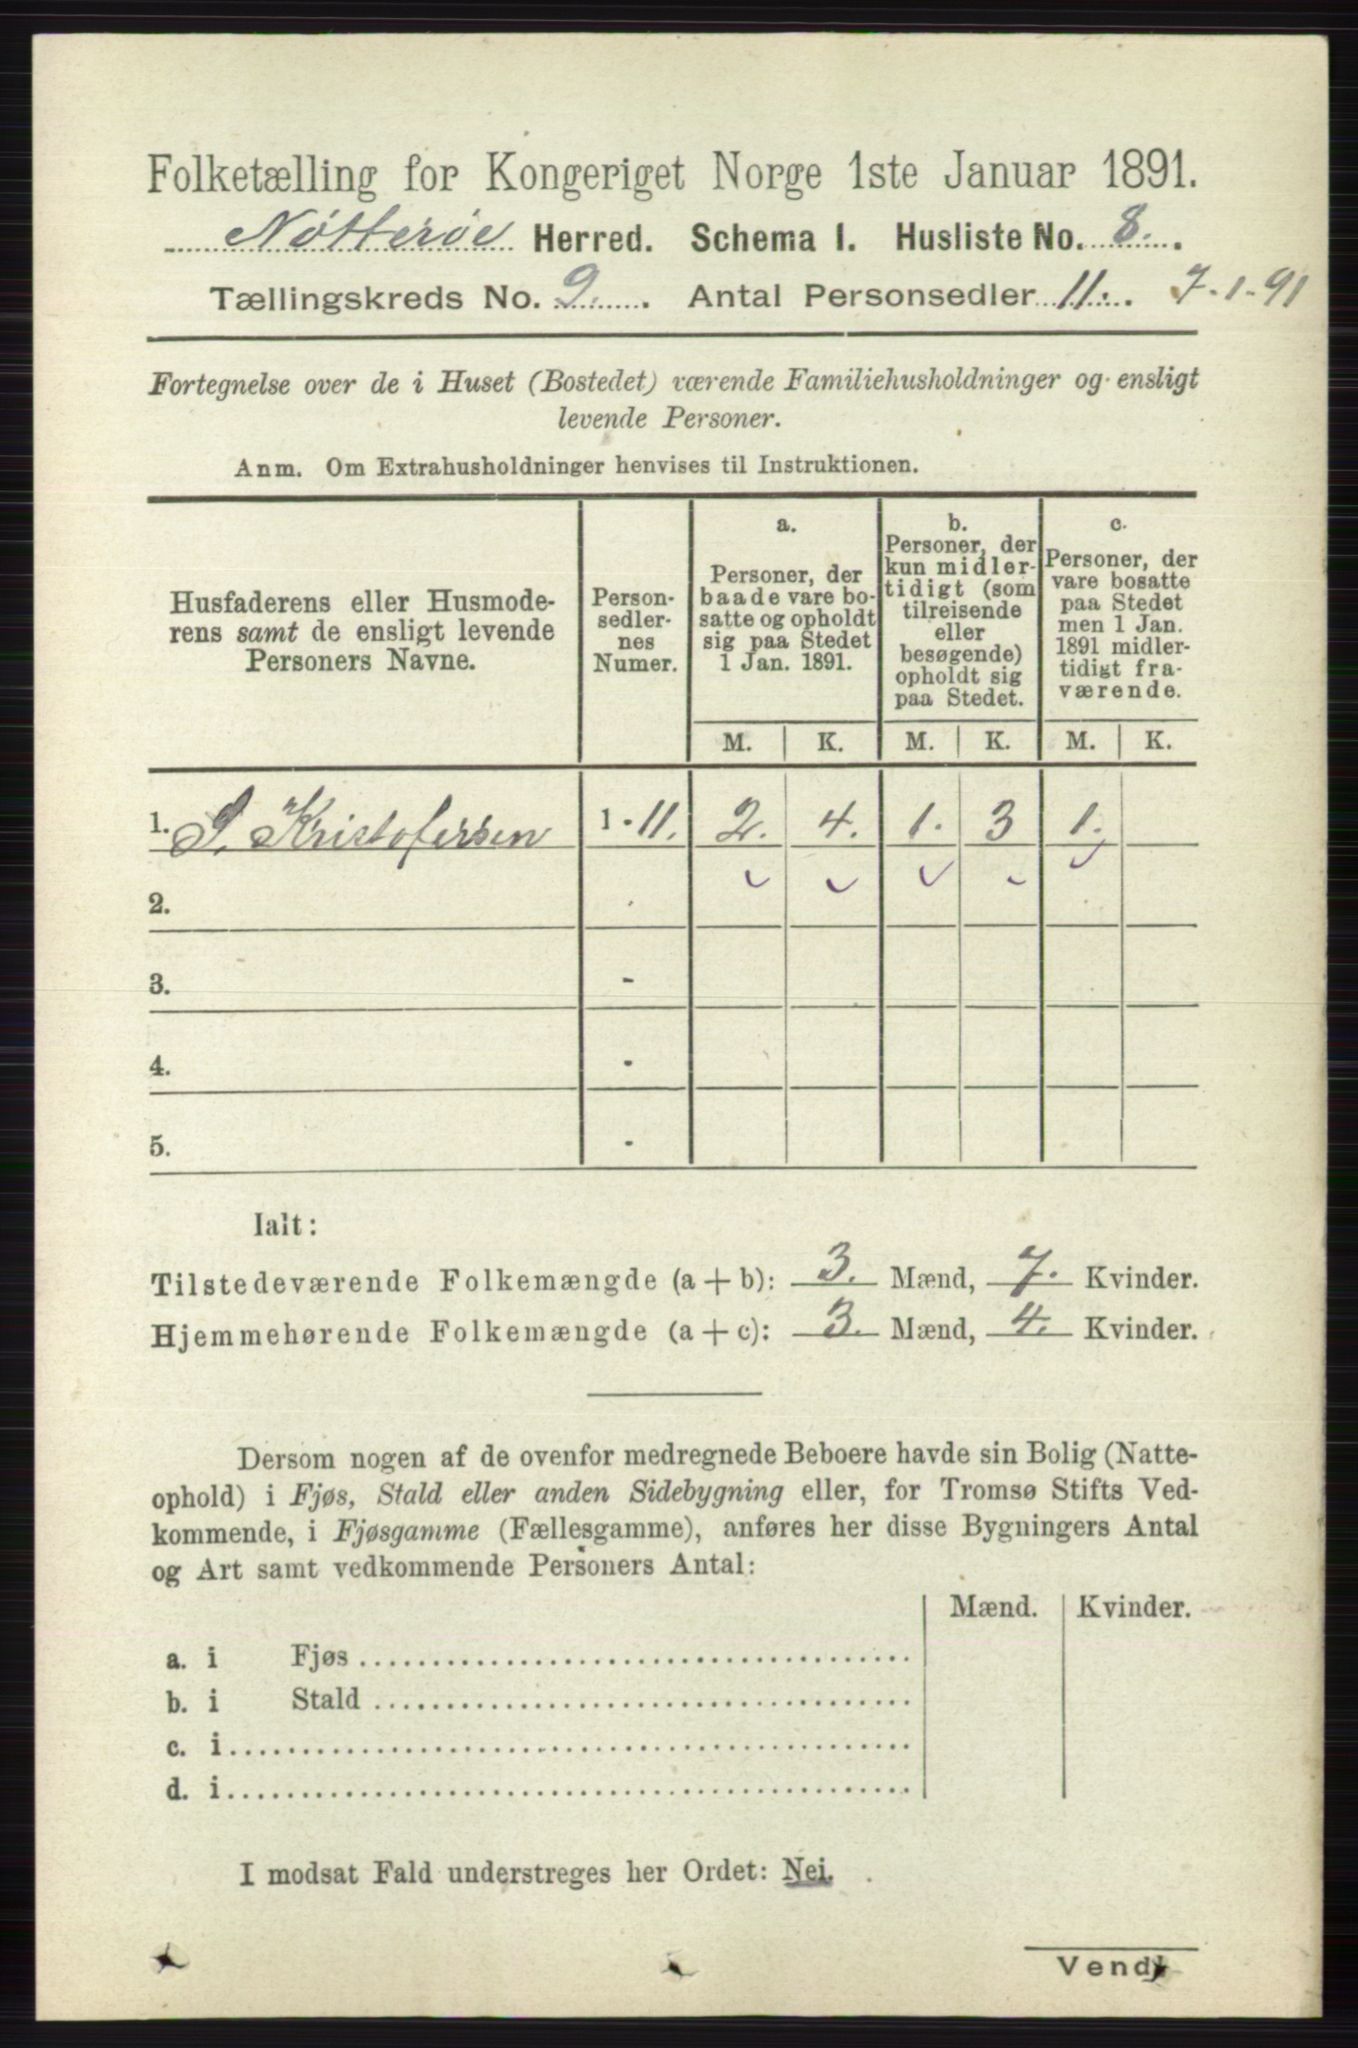 Folketælling for Kongeriget Norge 1ste Januar 1891.
Nøtterøe Herred. Schema I. Husliste No. 8.
Tællingskreds No. 9. Antal Personsedler 11. 7-1-91
Fortegnelse over de i Huset (Bostedet) værende Familiehusholdninger og ensligt
levende Personer.
Anm. Om Extrahusholdninger henvises til Instruktionen.
Husfaderens eller Husmode-
rens samt de ensligt levende
Personers Navne.
Person-
sedler-
nes
Numer.
a.
Personer, der
baade vare bo-
satte og opholdt
sig paa Stedet
1 Jan. 1891.
b.
Personer, der
kun midler-
tidigt (som
tilreisende
eller
besøgende)
opholdt sig
paa Stedet.
c.
Personer, der
vare bosatte
paa Stedet
men 1 Jan.
1891 midler-
tidigt fra-
værende.
M. K. M. K. M. K.
1. S. Kristofersen 1-11. 2. 4. 1. 3 1.
2.
3. -
4. -
5. -
Ialt:
Tilstedeværende Folkemængde (a + b): 3. Mænd, 7. Kvinder.
Hjemmehørende Folkemængde (a + c): 3. Mænd, 4. Kvinder.
Dersom nogen af de ovenfor medregnede Beboere havde sin Bolig (Natte-
ophold) i Fjøs, Stald eller anden Sidebygning eller, for Tromsø Stifts Ved-
kommende, i Fjøsgamme (Fællesgamme), anføres her disse Bygningers Antal
og Art samt vedkommende Personers Antal:
Mænd. Kvinder.
a. i Fjøs
b. i Stald
c. i
d. i
I modsat Fald understreges her Ordet: Nei.
Vend!